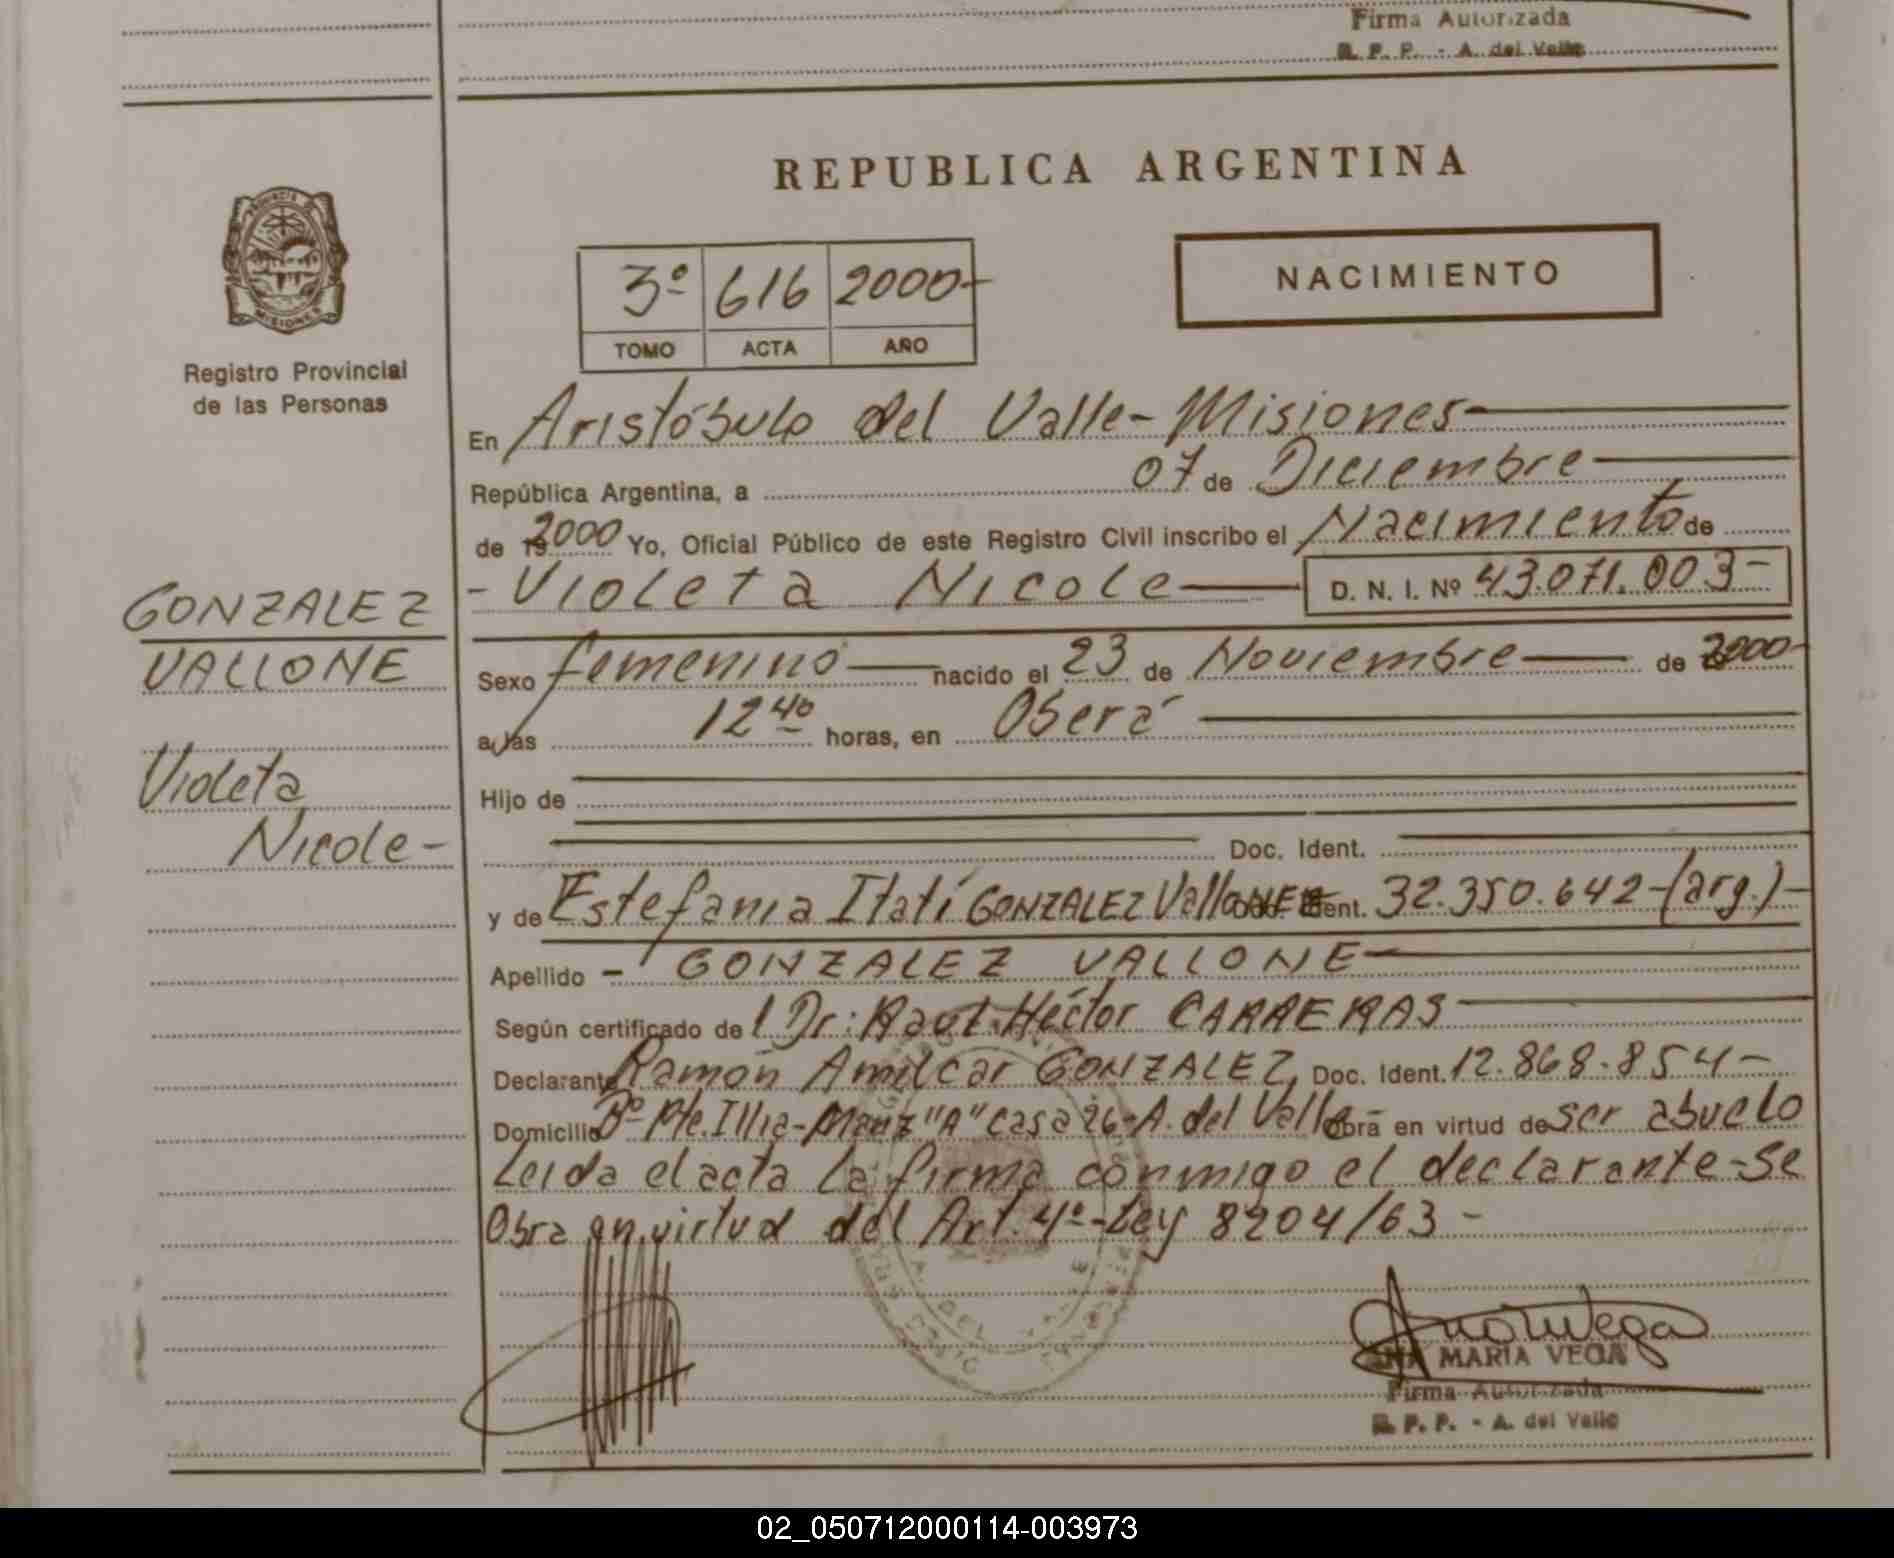 Firma Autorizada
R. P. P. - A. del Valle
REPUBLICA ARGENTINA
PROVINCIA DE
MISIONES
Registro Provincial
de las Personas
3º 616 2000-
TOMO ACTA AÑO
NACIMIENTO
En Aristóbulo del Valle-Misiones
República Argentina, a 07 de Diciembre
de 2000 Yo, Oficial Público de este Registro Civil inscribo el Nacimiento de
- Violeta Nicole D. N. I. Nº 43.071.003-
GONZALEZ
VALLONE
Violeta
Nicole-
Sexo femenino nacido el 23 de Noviembre de 2000-
a las 12 40 horas, en Oberá
Hijo de
Doc. Ident.
y de Estefania Itatí GONZALEZ VallONE Doc. Ident. 32.350.642-(arg.)-
Apellido - GONZALEZ VALLONE
Según certificado del Dr: Raul Héctor CARRERAS
Declarante Ramón Amilcar GONZALEZ, Doc. Ident. 12.868.854-
Domicilio Bº Pte. Illia-Manz "A" casa 26-A. del Valle Obra en virtud de ser abuelo
Leida el acta la firma conmigo el declarante-Se
Obra en virtud del Art. 4º-Ley 8204/63-
ANA MARIA VEGA
Firma Autorizada
R. P. P. - A. del Valle
02_050712000114-003973